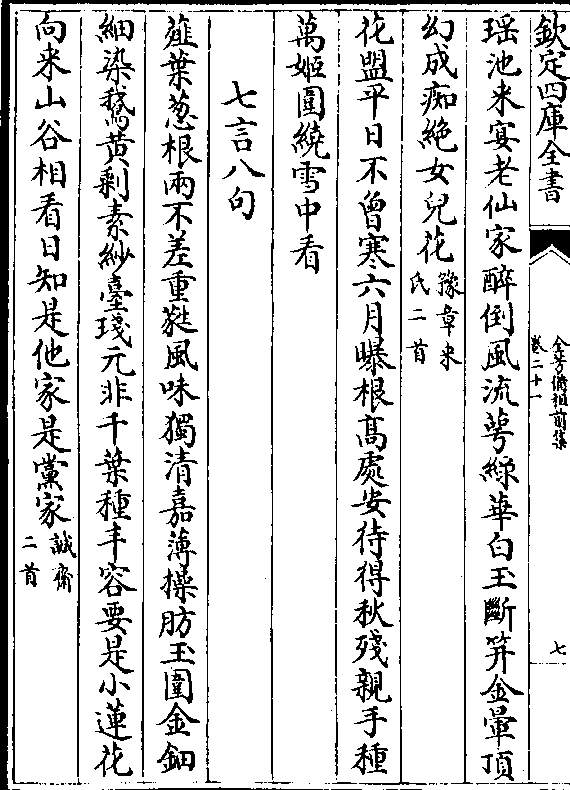 欽定四庫全書
全芳備祖前集
卷二十一
七
瑶池来宴老仙家醉倒風流萼緑華白玉斷笄金暈頂
幻成痴絶女兒花豫章来氏二首
花盟平日不曾寒六月曝根髙處安待得秋殘親手種
萬姬圍繞雪中看
七言八句
薤葉葱根兩不差重蕤風味獨清嘉薄揉肪玉圍金鈿
細染鵝黄剰素紗臺琖元非千葉種丰容要是小蓮花
向来山谷相看日知是他家是黨家誠齋二首